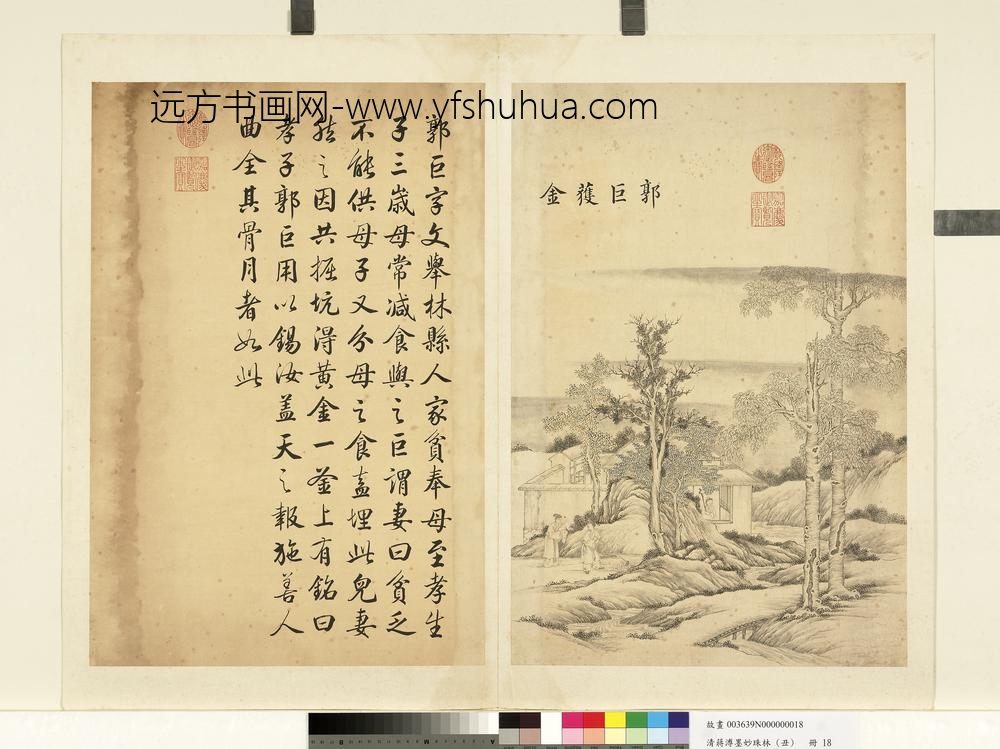 远方书画网-www.yfshuhua.com
郭巨獲金
郭巨字文舉林縣人家貧奉母至孝生
子三歲母常减食與之巨謂妻曰貧乏
不能供母子又分母之食盍埋此兒妻
然之因共掘坑得黄金一釜上有銘曰
孝子郭巨用以錫汝蓋天之報施善人
曲全其骨月者如此
故畫 003639N000000018
清蔣溥墨妙珠林（丑） 冊 18